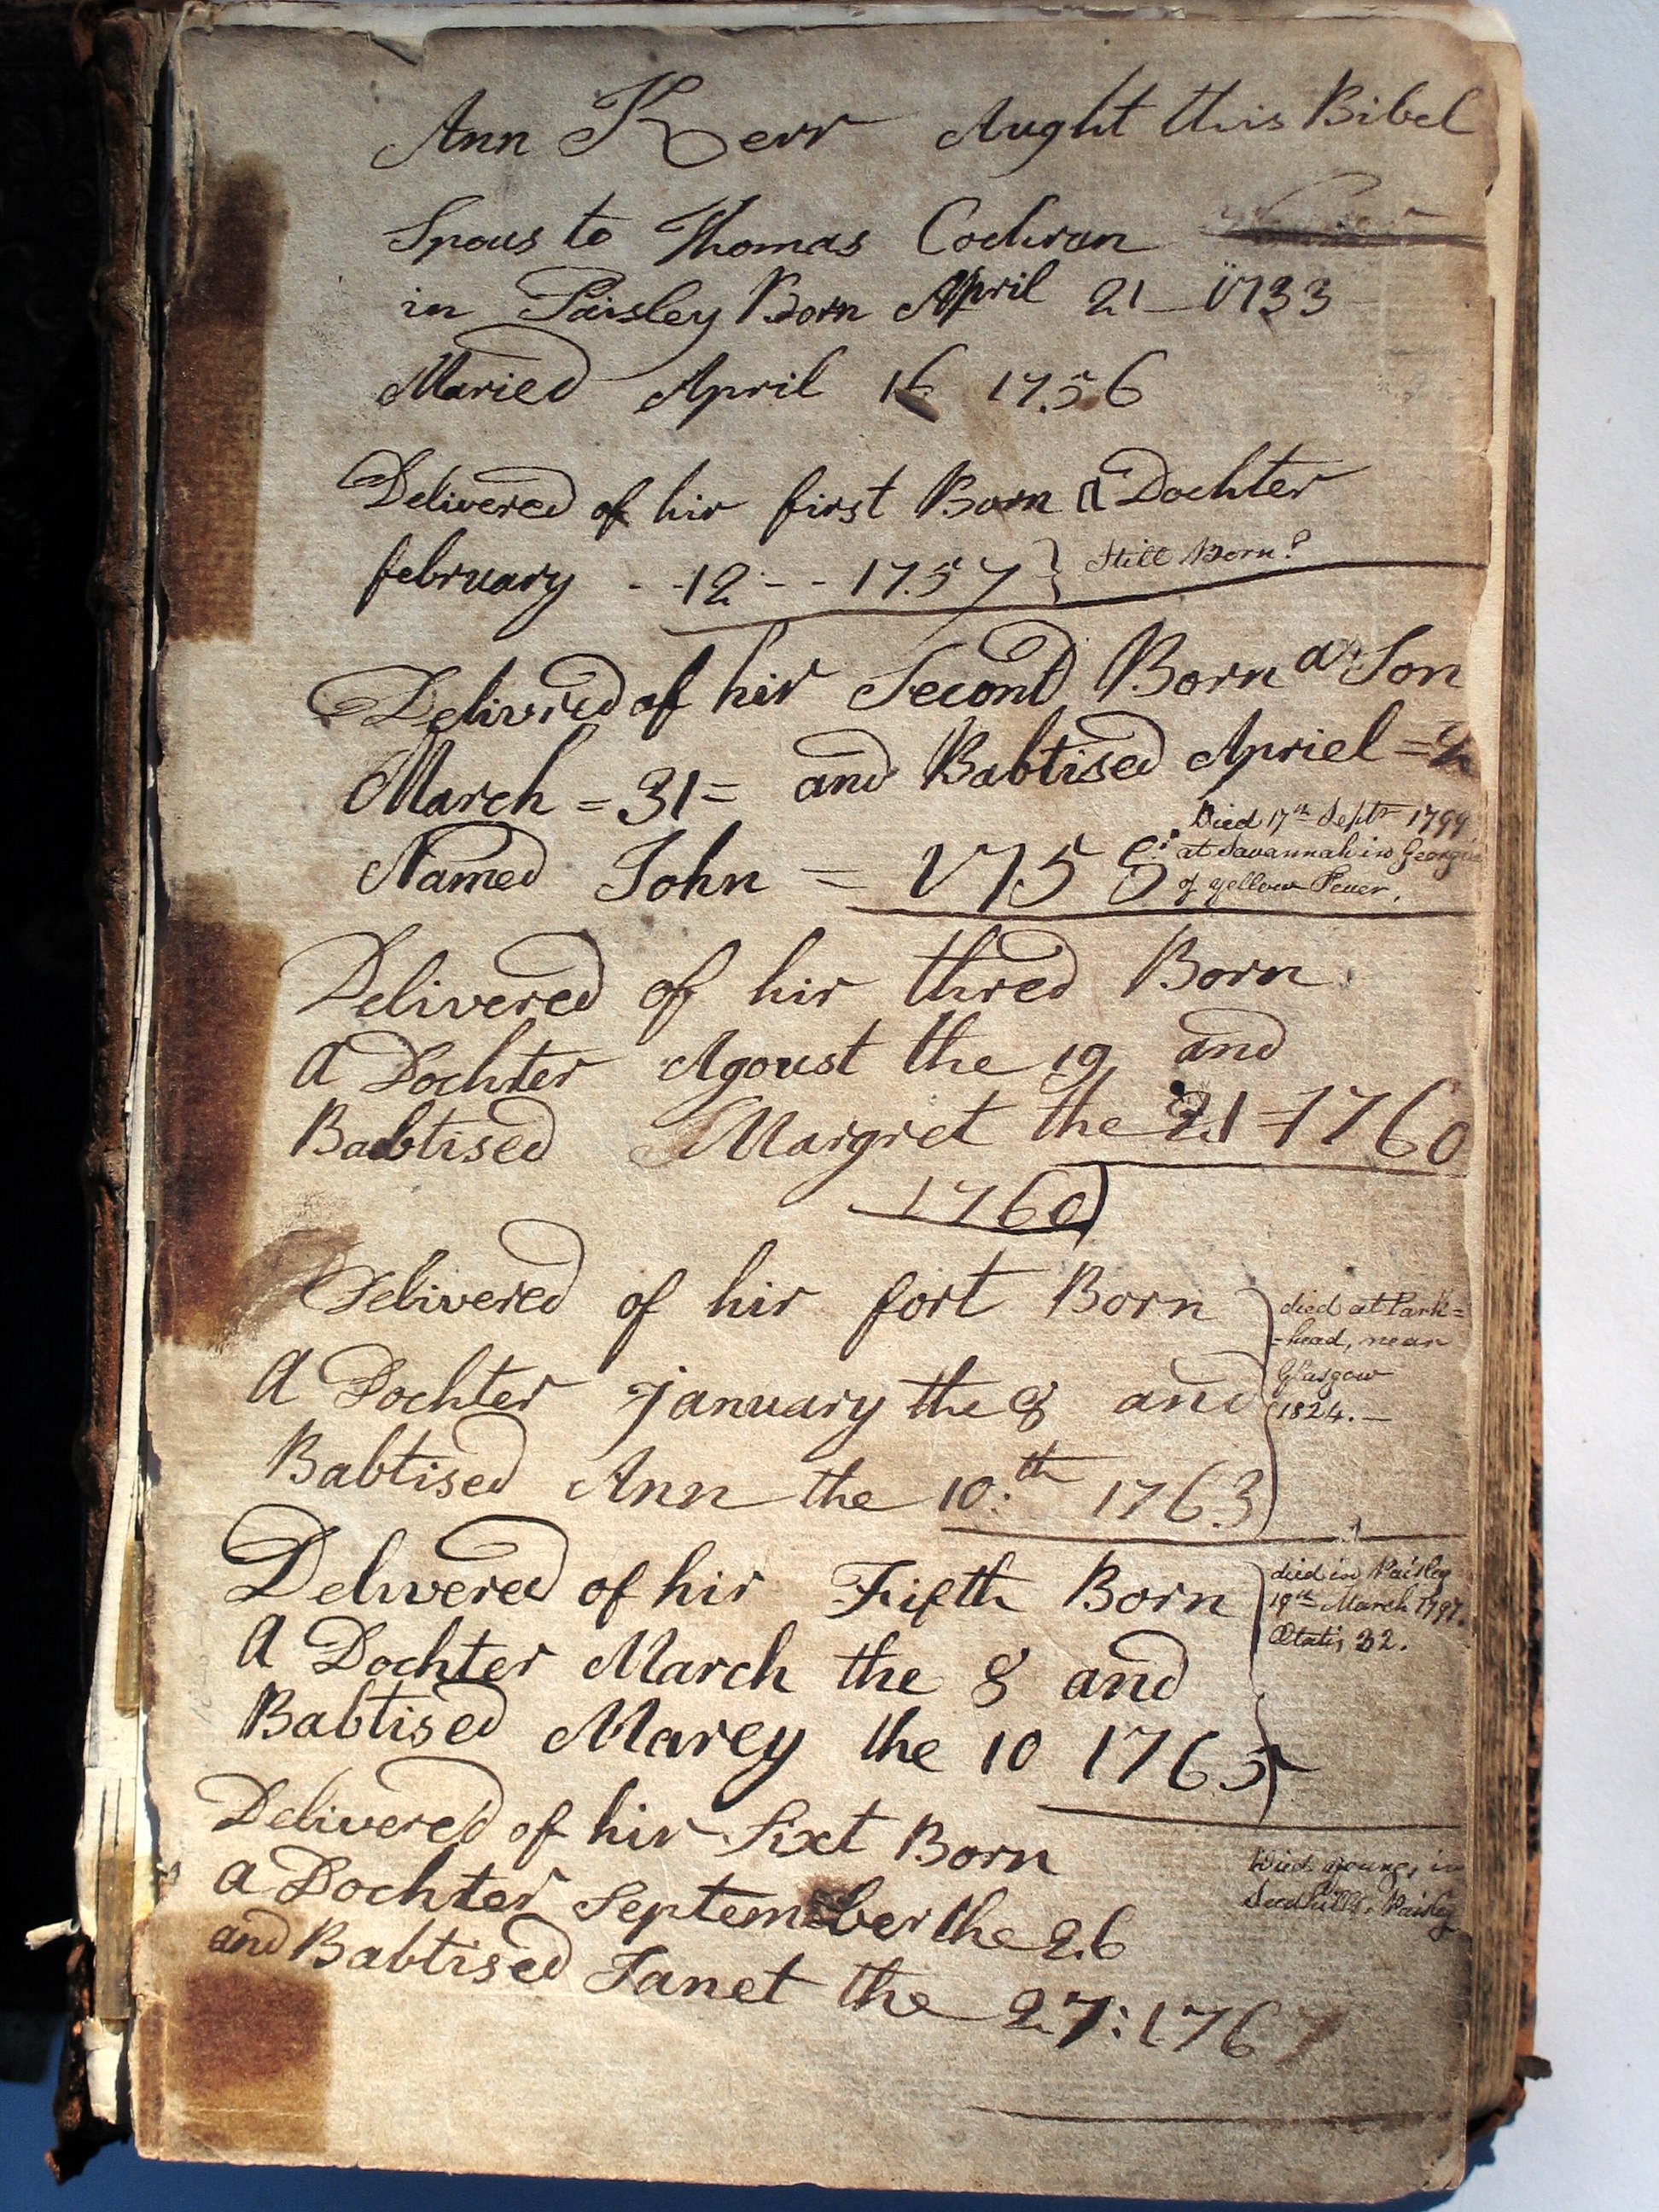 Ann Kerr Aught this Bibel
Spous to Thomas Cochran
in Paisley Born April 21 1733
Maried April 16 1756
Delivered of hir first Born a Dochter
february - - 12 - - 1757 } Still Born?
Delivred of hir Second Born a Son
March = 31 = and Babtised Apriel =
Named John = 1758
Died 17th Septr 1799
at Savannah in Georgia
of yellow Fever.
Delivered of hir thred Born
A Dochter Agoust the 19 and
Babtised Margret the 21 = 1760
1760
Delivered of hir fort Born
A Dochter january the 8 and
Babtised Ann the 10th 1763
died at Park=
=head, near
Glasgow
1824. —
Delivered of hir Fifth Born
A Dochter March the 8 and
Babtised Marey the 10 1765
died in Paisley
19th March 1797.
Ætatis 32.
Delivered of hir Sixt Born
a Dochter September the 26
and Babtised Janet the 27: 1767
Died young, in
Seedhills, Paisley